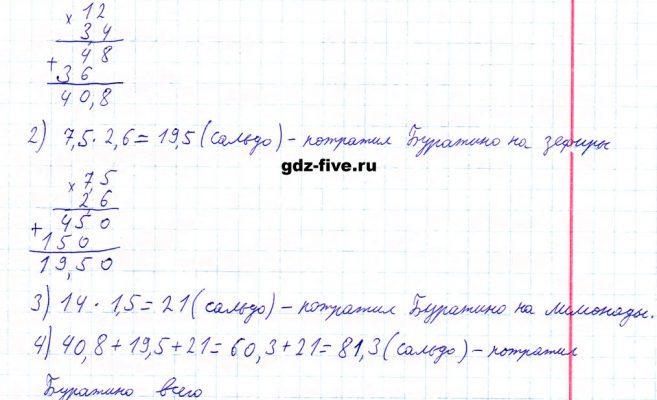 × 12
3,4
+ 48
36
40,8
2) 7,5 · 2,6 = 19,5 (сальдо) – потратил Буратино на зефиры
gdz-five.ru
× 7,5
2,6
+ 450
150
19,50
3) 14 · 1,5 = 21 (сальдо) – потратил Буратино на лимонады.
4) 40,8 + 19,5 + 21 = 60,3 + 21 = 81,3 (сальдо) – потратил
Буратино всего